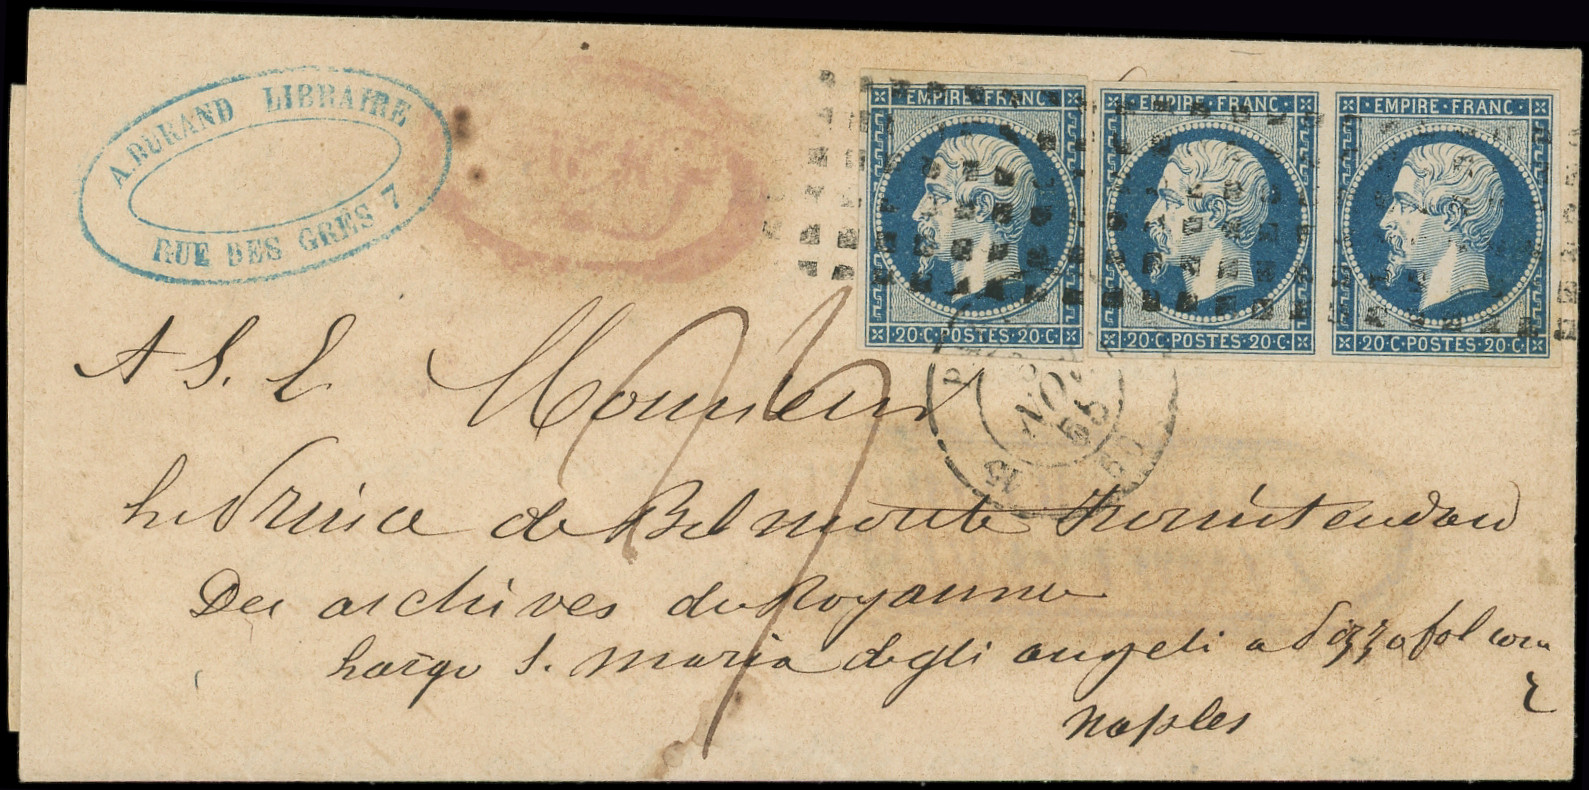 A. DURAND LIBRAIRE
RUE DES GRES 7
EMPIRE·FRANC·
20·C·POSTES·20·C·
EMPIRE·FRANC·
20·C·POSTES·20·C·
EMPIRE·FRANC·
20·C·POSTES·20·C·
NOV.
55
15
60
A S. E Monsieur
le Prince de Belmonte
Des archives du Royaume
largo S. maria degli angeli a Pizzofalcone
Naples